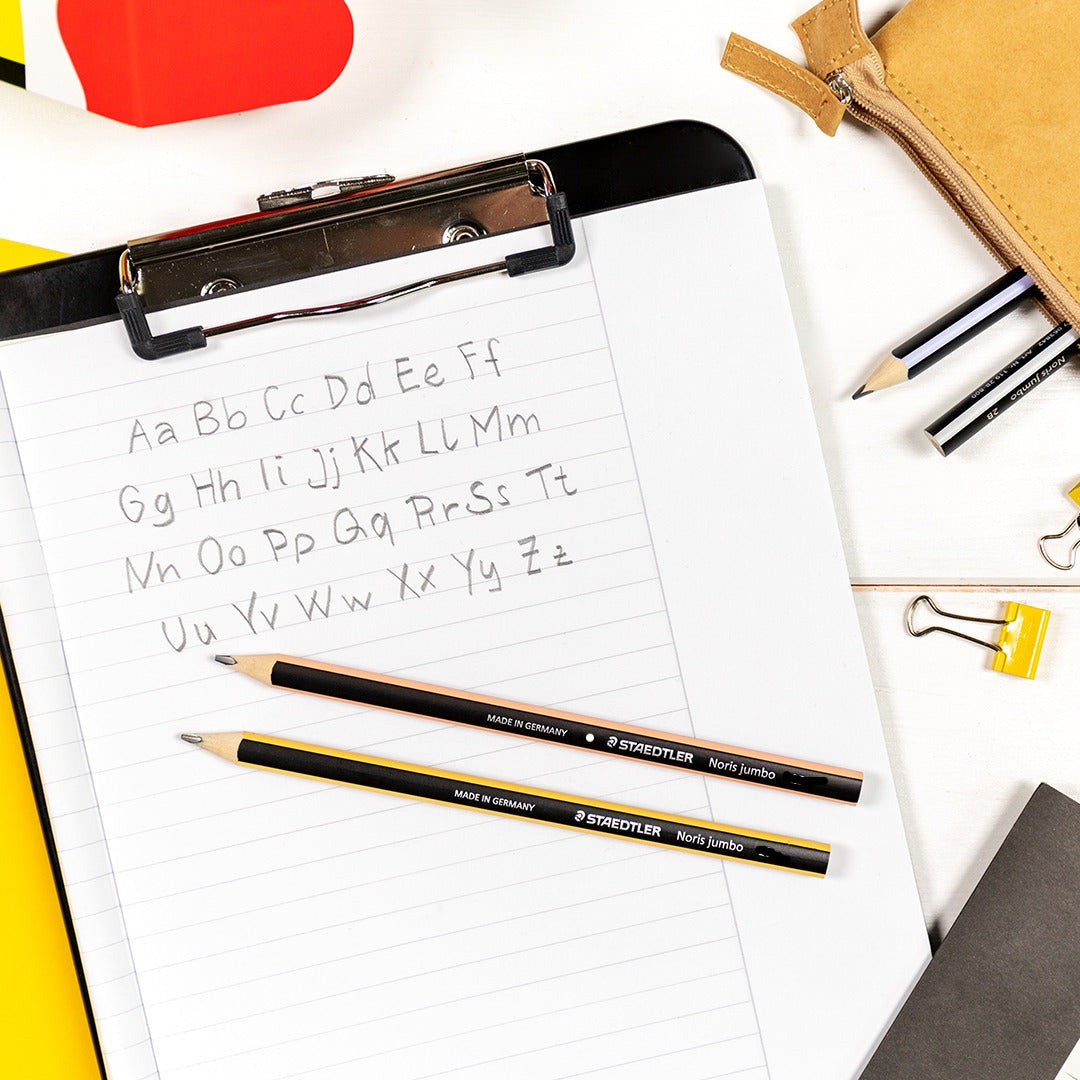 Aa Bb Cc Dd Ee Ff
Gg Hh Ii Jj Kk Ll Mm
Nn Oo Pp Qq Rr Ss Tt
Uu Vv Ww Xx Yy Zz
MADE IN GERMANY STAEDTLER Noris jumbo
MADE IN GERMANY STAEDTLER Noris jumbo
Noris jumbo 2B